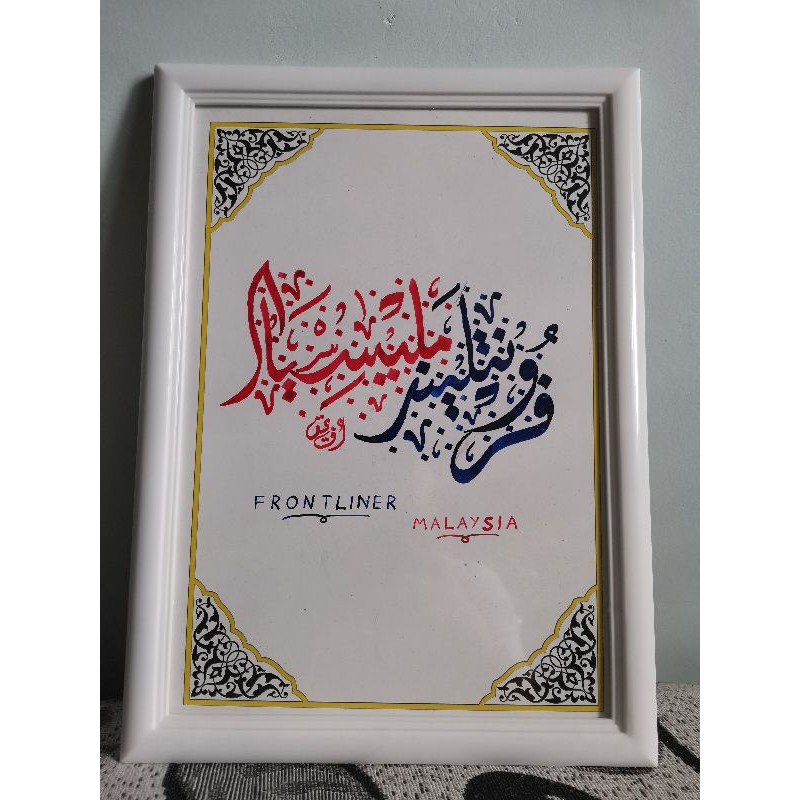 فرونتلينر مليسيا
FRONTLINER
MALAYSIA